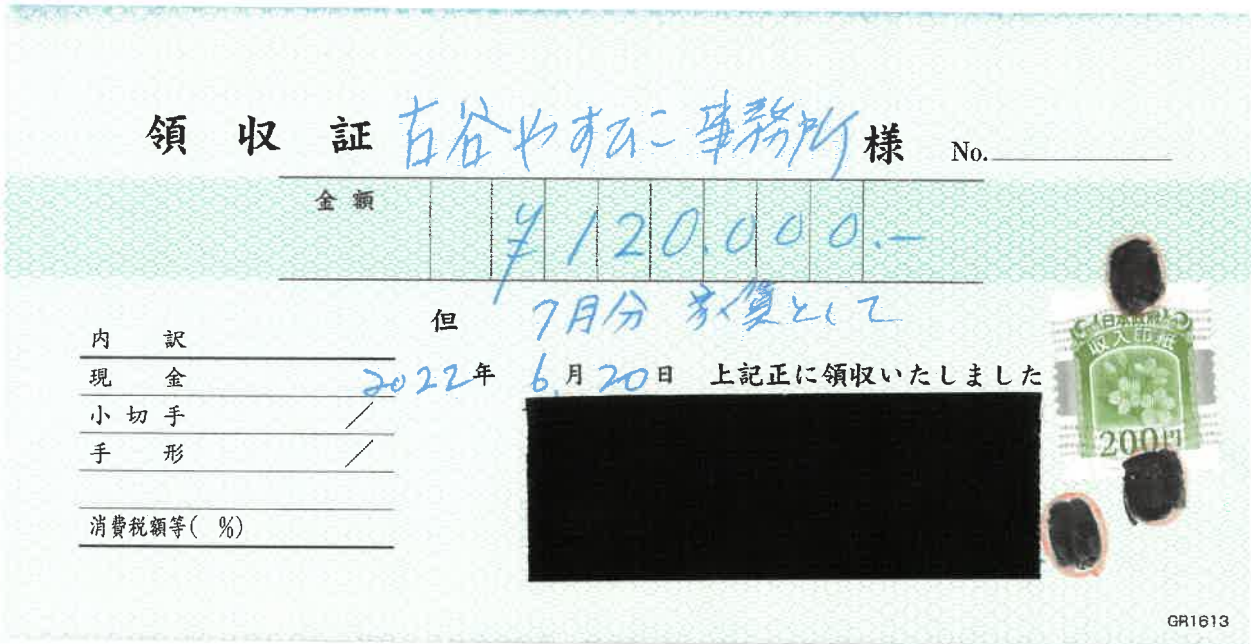 領収証 古谷やすひこ事務所 様 No.
金額 ¥120.000.-
但 7月分 家賃として
2022年 6月20日 上記正に領収いたしました
内訳
現金
小切手 /
手形 /
消費税額等( %)
日本政府
収入印紙
200円
GR1613